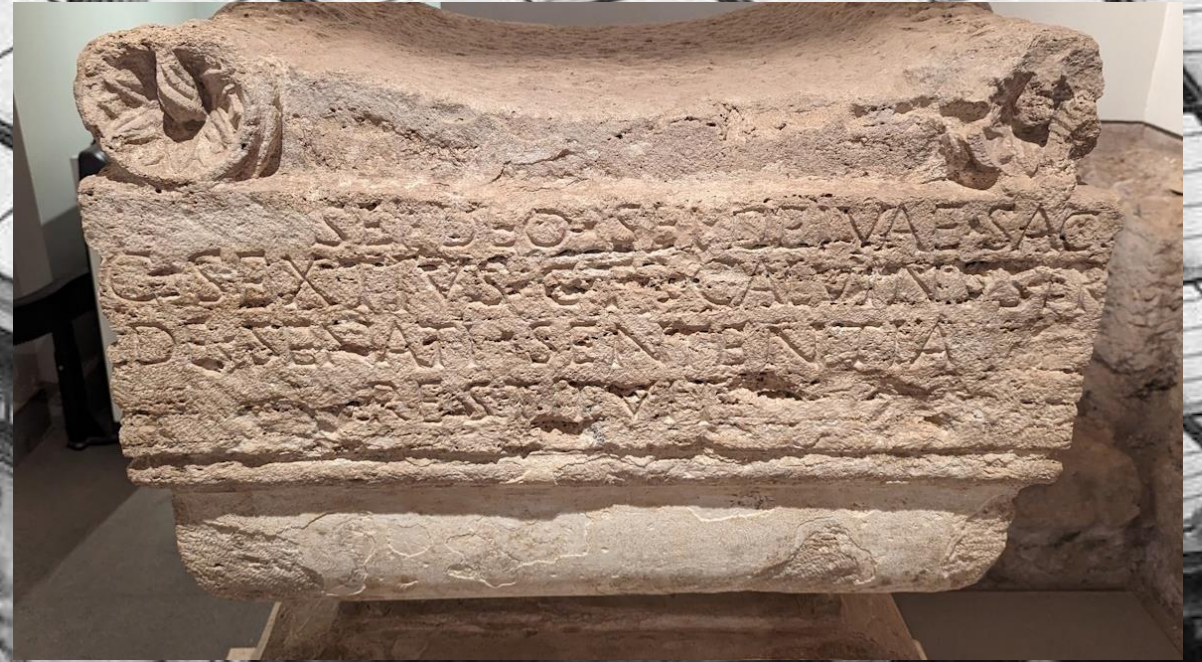 SEI·DEO·SEI·DEIVAE·SAC
C·SEXTIVS·C·F·CALVINVS·PR
DE·SENATI·SENTENTIA
RESTITVIT